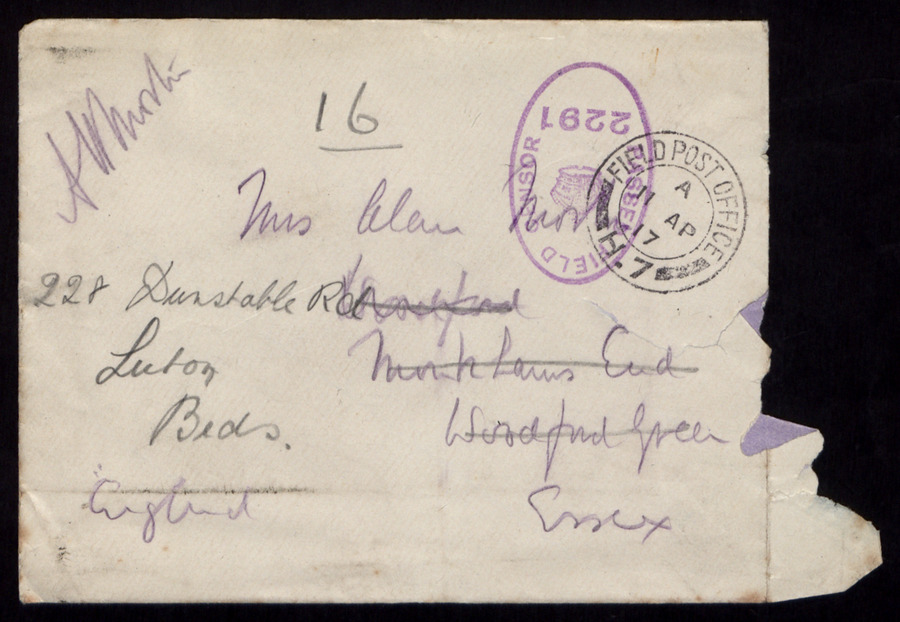 16
FIELD CENSOR
PASSED
2291
FIELD POST OFFICE
A
11 AP
17
H.7
Mrs Alan
228 Dunstable Rd Woodford
Luton Monkhams End
Beds. Woodford Green
England Essex